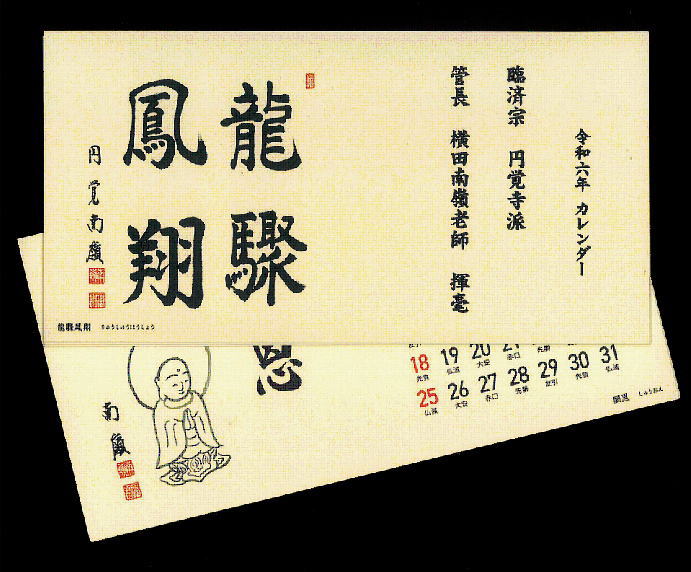 令和六年 カレンダー
臨済宗 円覚寺派
管長 横田南嶺老師 揮毫
龍驟
鳳翔
円覚南嶺
龍驟鳳翔 りゅうしゅうほうしょう
恩
南嶺
18 19 20 21
先負 仏滅 大安 赤口 先勝
25 26 27 28 29 30 31
仏滅 大安 赤口 先勝 友引 先負 仏滅
しゅうおん